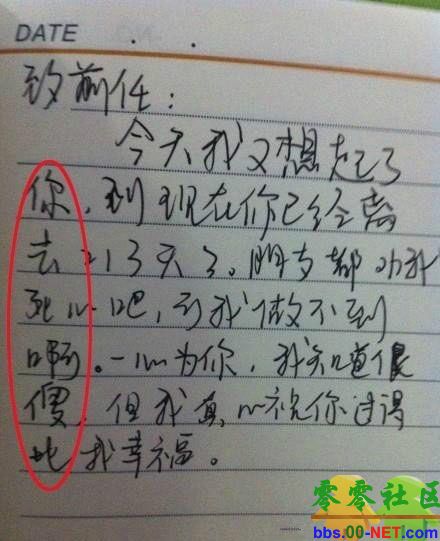 DATE . .
致前任：
今天我又想起了
你，到现在你已经离
去213天了。朋友都劝我
死心吧，可我做不到
啊。一心为你，我知道很
傻，但我真心祝你过得
比我幸福。
零零社区
bbs.00-NET.com